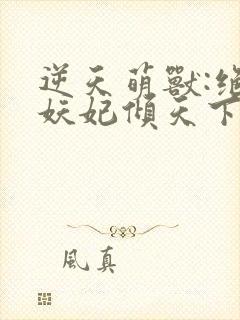 逆天萌獸:絕
妖妃傾天下
風真